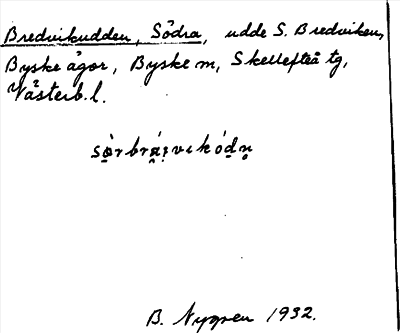 Bredvikudden, Södra, udde S. Bredviken,
Byske ågor, Byske m, Skellefteå tg,
Västerb. l.
B. Nygren 1932.